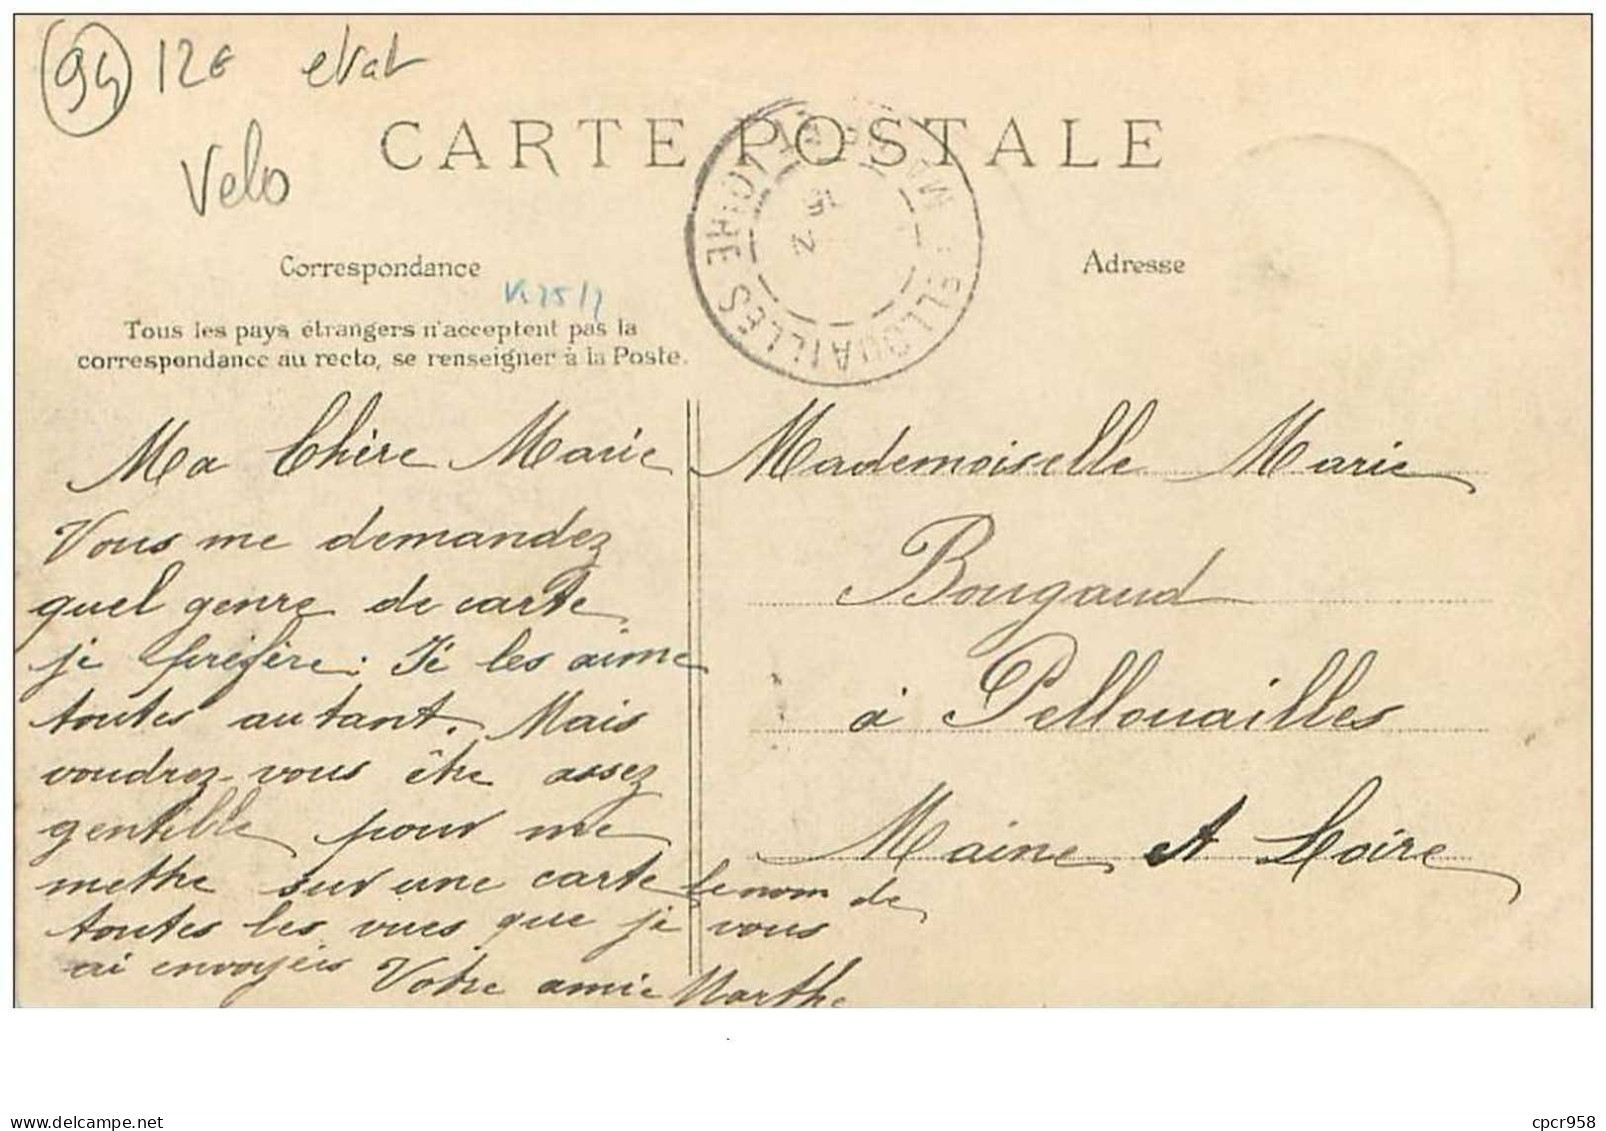 94 12€ etat
Velo
CARTE POSTALE
PELLOUAILLES
Correspondance
Adresse
Tous les pays étrangers n'acceptent pas la
correspondance au recto, se renseigner à la Poste.
Ma Chère Marie
Vous me demandez
quel genre de carte
je préfère: Je les aime
toutes autant. Mais
voudrez-vous être assez
gentille pour me
methe sur une carte le nom de
toutes les vues que je vous
ai envoyées
Votre amie Marthe
Mademoiselle Marie
Bougaud
à Pellouailles
Maine et Loire
www.delcampe.net
cpcr958